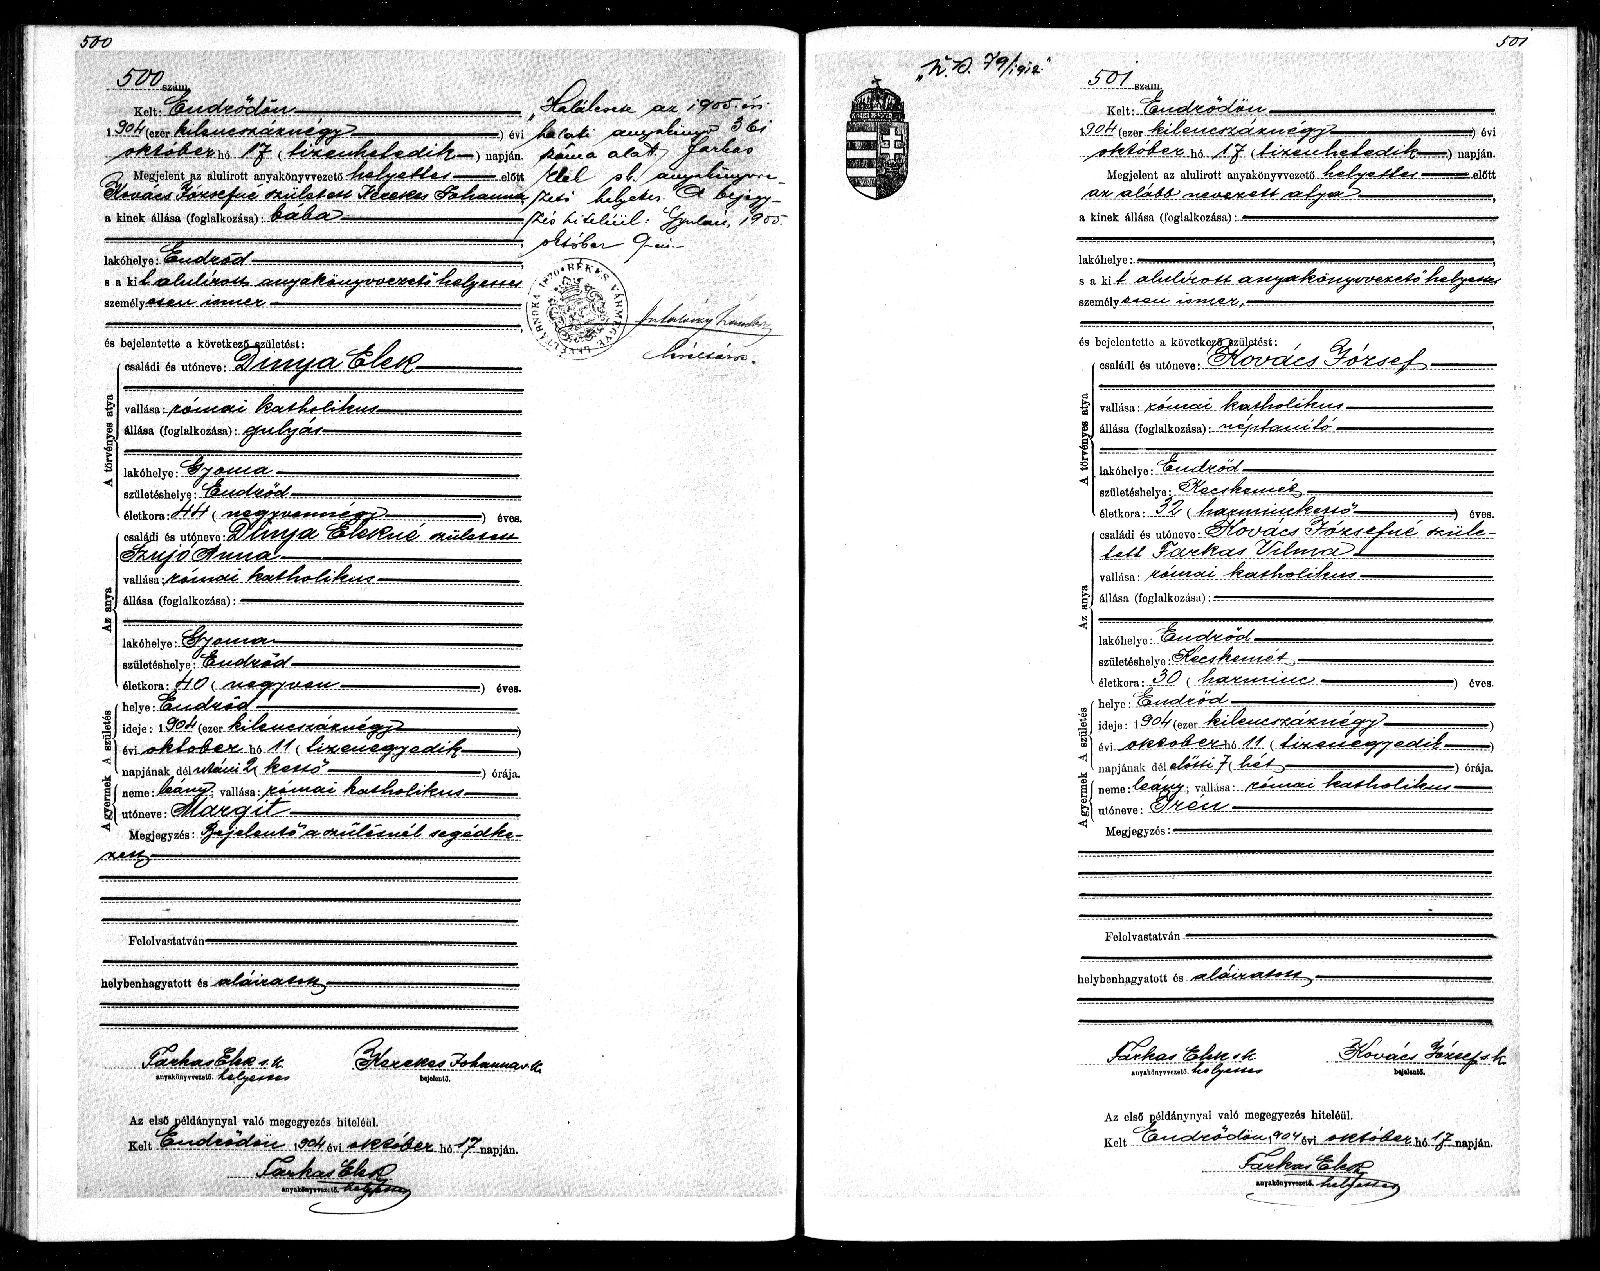 500
500 szám.
Kelt: Endrődön
1904 (ezer kilencszáznégy) évi
október hó 17 (tizenhetedik) napján.
Megjelent az alulirott anyakönyvvezető helyettes előtt
Kovács Józsefné született Kerekes Johanna,
a kinek állása (foglalkozása): bába
lakóhelye: Endrőd
s a kit alulirott anyakönyvvezető helyettes
személyesen ismer
és bejelentette a következő születést:
A törvényes atya
családi és utóneve: Dinya Elek
vallása: római katholikus
állása (foglalkozása): gulyás
lakóhelye: Gyoma
születéshelye: Endrőd
életkora: 44 (negyvennégy) éves.
Az anya
családi és utóneve: Dinya Elekné született
Szujó Anna
vallása: római katholikus
állása (foglalkozása):
lakóhelye: Gyoma
születéshelye: Endrőd
életkora: 40 (negyven) éves.
A születés
helye: Endrőd
ideje: 1904 (ezer kilencszáznégy)
évi október hó 11 (tizenegyedik)
napjának dél utáni 2 kettő) órája.
A gyermek
neme: leány; vallása: római katholikus
utóneve: Margit
Megjegyzés: Bejelentő a szülésnél segédke-
zett
Felolvastatván
helybenhagyatott és aláiratott
Farkas Elek s k
anyakönyvvezető. helyettes
Kerekes Johanna s k.
bejelentő.
Az első példánynyal való megegyezés hiteléül.
Kelt Endrődön, 1904 évi október hó 17 napján.
Farkas Elek
anyakönyvvezető. helyettes
„Halálesete az 1905. évi
halotti anyakönyv 361
száma alatt. Farkas
Elek sk. anyakönyvve-
zető helyettes. A bejegy-
zés hiteléül: Gyulán, 1905.
október 9-én
BÉKÉS VÁRMEGYE LEVÉLTÁRNOKA 1870
501
„N. O. 79/1912"
501 szám.
Kelt: Endrődön
1904 (ezer kilencszáznégy) évi
október hó 17 (tizenhetedik) napján.
Megjelent az alulirott anyakönyvvezető helyettes előtt
az alább nevezett atya
a kinek állása (foglalkozása):
lakóhelye:
s a kit alulirott anyakönyvvezető helyettes
személyesen ismer,
és bejelentette a következő születést:
A törvényes atya
családi és utóneve: Kovács József
vallása: római katholikus
állása (foglalkozása): néptanító
lakóhelye: Endrőd
születéshelye: Kecskemét
életkora: 32 (harminckettő) éves.
Az anya
családi és utóneve: Kovács Józsefné szüle-
tett Farkas Vilma
vallása: római katholikus
állása (foglalkozása):
lakóhelye: Endrőd
születéshelye: Kecskemét
életkora: 30 (harminc) éves.
A születés
helye: Endrőd
ideje: 1904 (ezer kilencszáznégy)
évi október hó 11 (tizenegyedik)
napjának dél előtti 7 (hét) órája.
A gyermek
neme: leány; vallása: római katholikus
utóneve: Irén
Megjegyzés:
Felolvastatván
helybenhagyatott és aláiratott
Farkas Elek sk
anyakönyvvezető. helyettes
Kovács József s k
bejelentő.
Az első példánynyal való megegyezés hiteléül.
Kelt Endrődön, 1904 évi október hó 17 napján.
Farkas Elek
anyakönyvvezető. helyettes